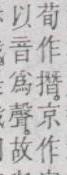 荀作撍京作
以音爲聲故